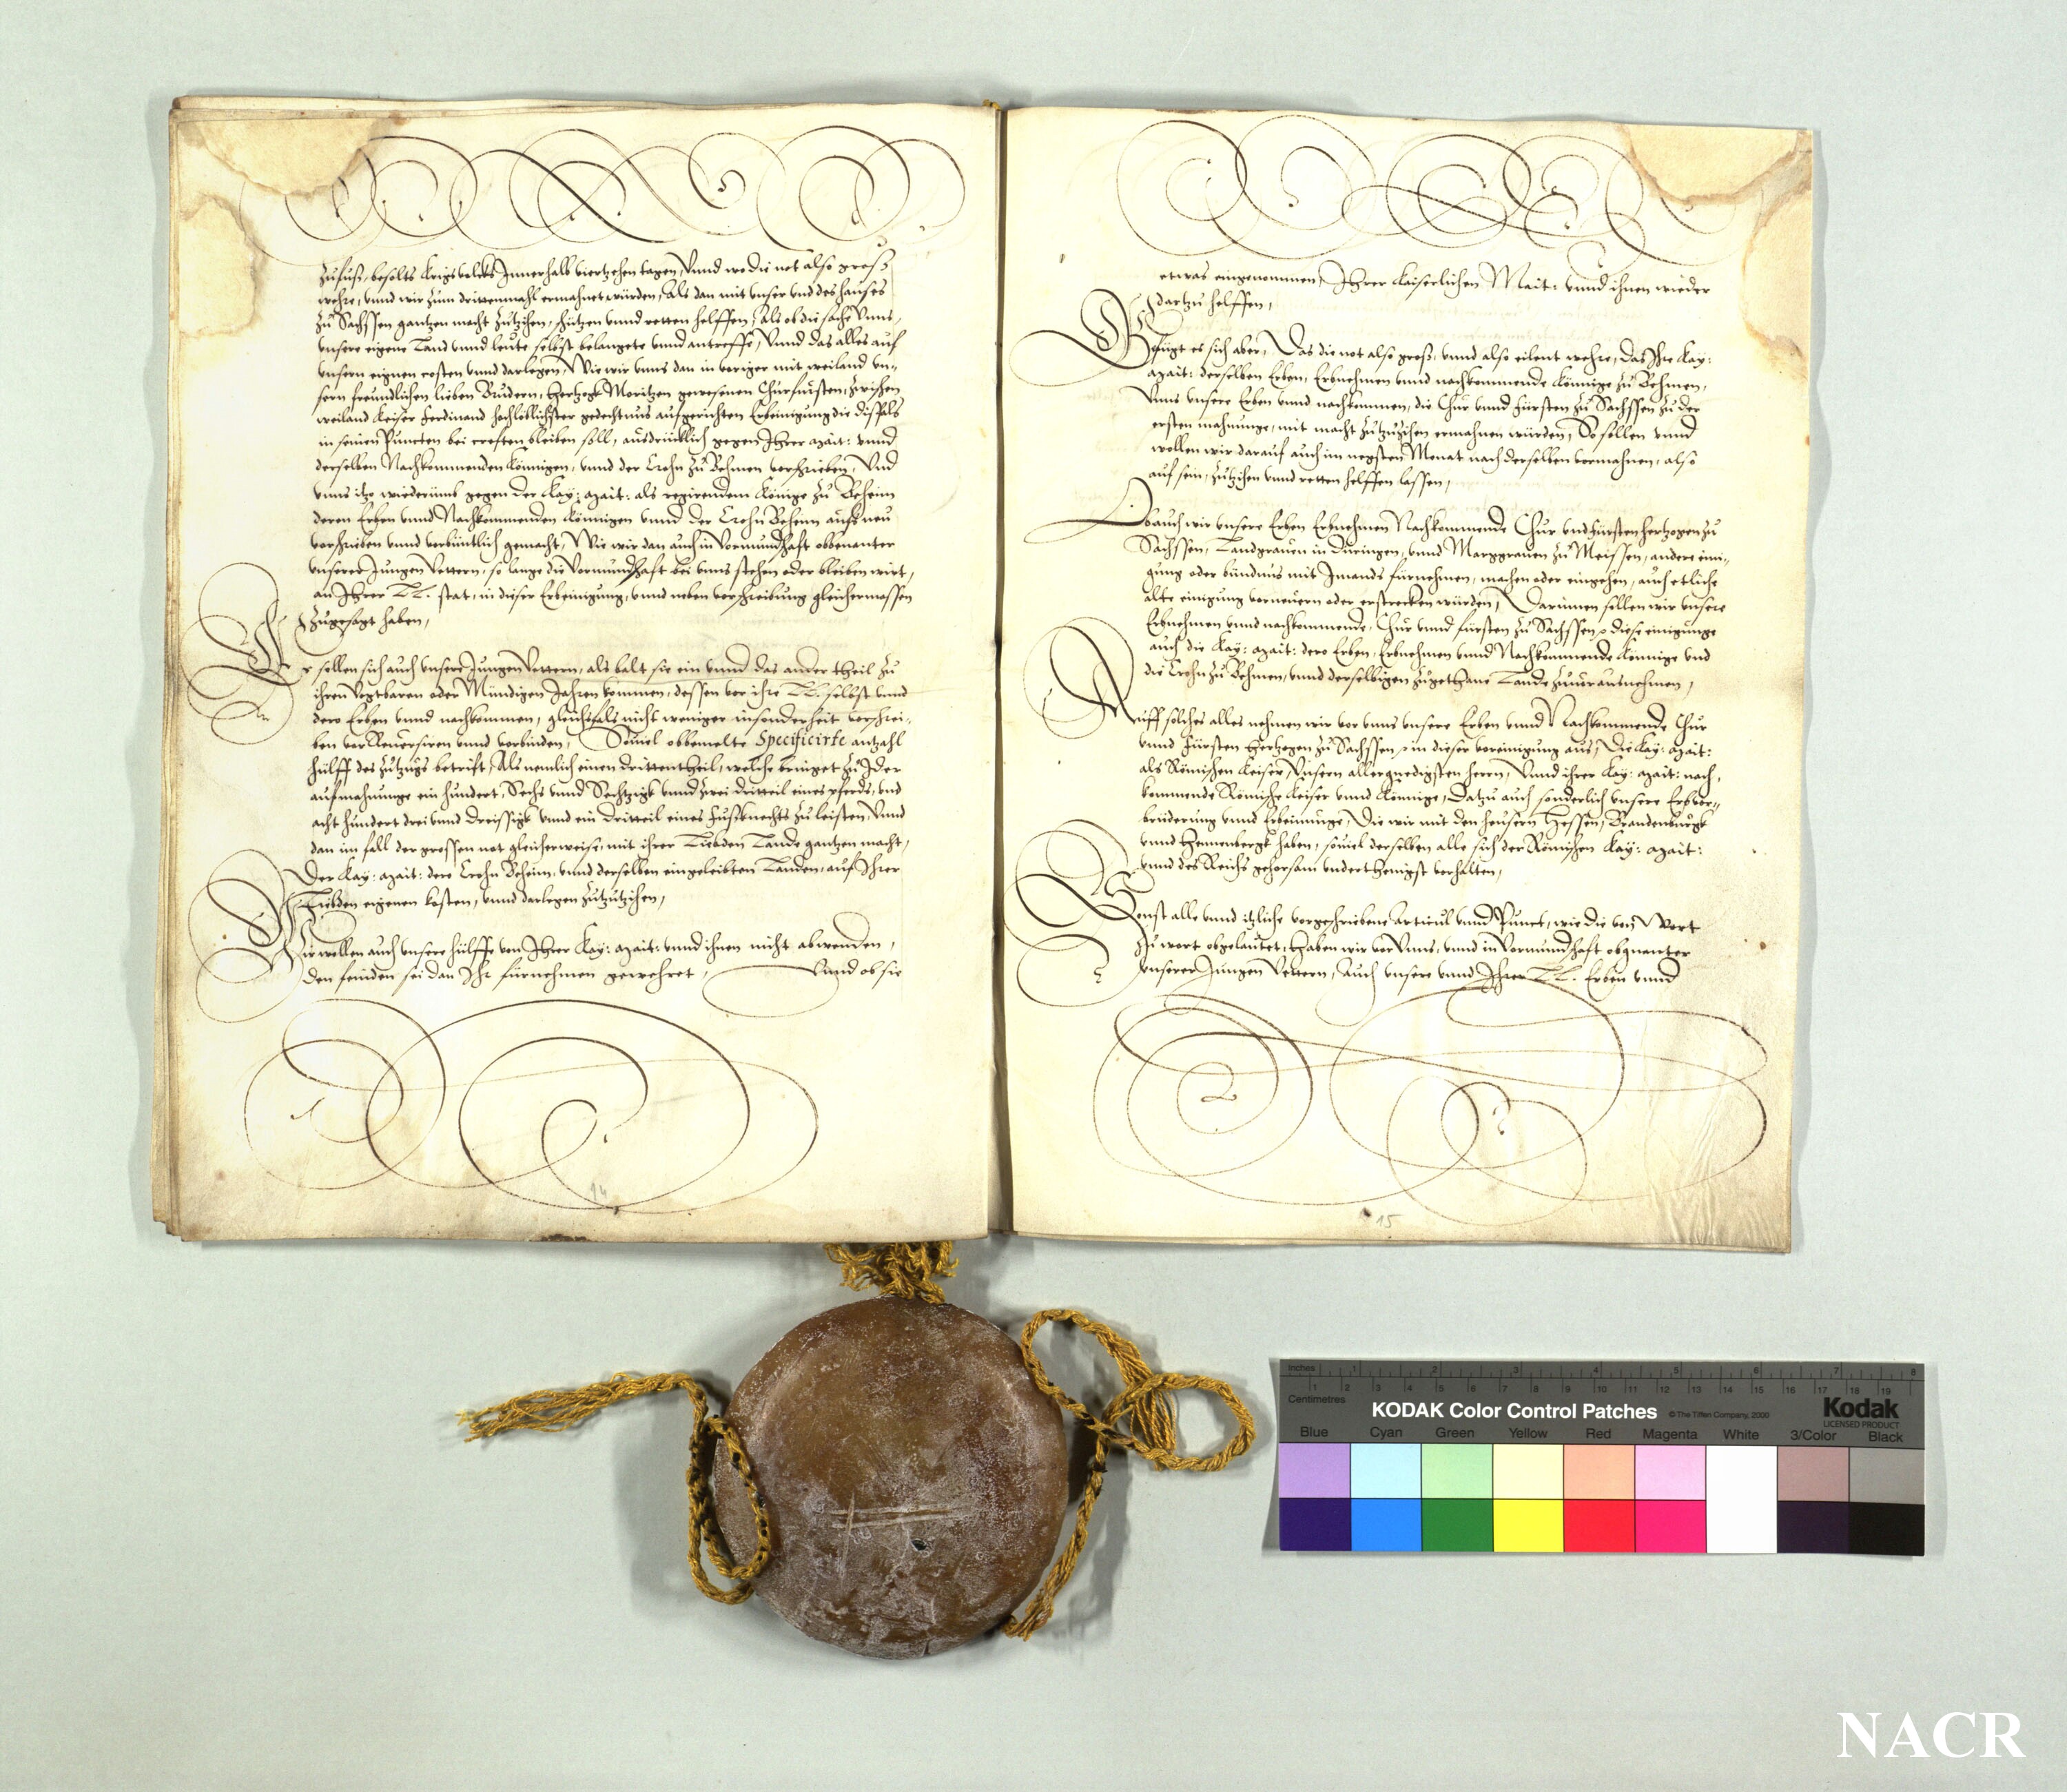 zufuß, besolts krigsvolcks Innerhalb viertzehen tagen, Vnnd wo die not also groß
wehre, vnnd wir zum drittenmahl ermahnet würden, Als dan mit vnser vnd des hauses
zu Sachssen gantzen macht zutzihen, schützen vnnd retten helffen, Als ob die sache Vnns,
vnsere eigene Land vnnd leute selbst belangete vnnd antreffe, Vnnd das alles auf
vnsern eignen costen vnnd darlegen, Wie wir vnns dan in voriger mit weiland vn-
sern freundlichen lieben Brudern, Hertzogk Moritzen gewesenen Churfürsten, zwischen
weiland Keiser Ferdinand hochlöblichster gedechtnus aufgerichten Erbeinigung die disfals
in seinen Puncten bei creften bleiben soll, ausdrücklich gegen Ihrer Mait: vnnd
derselben Nachkommenden Könnigen, vnnd der Crohn zu Behmen verschrieben, Vnd
vnns itzo wiederumb gegen der Kay: Mait: als regirendem Könige zu Beheim
deren Erben vnnd Nachkommenden Königen vnnd der Crohn Beheim aufs neu
verschrieben vnnd verbüntlich gemacht, Wie wir dan auch in Vormundschaft obbenanter
vnserer Jungen Vettern, so lange die Vormundschaft bei vnns stehen oder bleiben wirt,
an Ihrer LL. stat, in dieser Erbeinigung, vnnd neben verschreibung gleichermassen
zugesagt haben,
Es sollen sich auch vnsere Jungen Vettern, als balt sie ein vnnd das ander theil zu
ihren Vogtbaren oder Mündigen Jahren kommen, dessen vor ihre LL. selbst vnnd
dero Erben vnnd nachkommen, gleichsfals nicht weniger insonderheit verschrei-
ben vor Reuersiren vnnd verbinden, Souiel obbemelte Specificirte antzahl
hülff des zutzugs betrift, Als nemlich einen drittentheil, welche bringet zu Jder
aufmahnunge ein hundert, Sechs vnnd Sechtzigk vnnd zwei dritteil eines pferds, vnd
acht hundert drei vnnd dreissigk vnnd ein dritteil eines fusknechts zu leisten, Vnnd
dan im fall der grossen not gleicherweise, mit ihrer Liebden Lande gantzen macht,
Der Kay: Mait: dero Crohn Beheim, vnnd derselben eingeleibten Landen, auf Ihrer
Liebden eigenen kosten, vnnd darlegen zutzutzihen,
Wir wollen auch vnsere hülffe von Ihrer Kay: Mait: vnnd ihnen nicht abwenden,
den feinden sei dan Ihr fürnehmen gewehret, Vnnd ob sie
14
etwas eingenommen, Ihrer Kaiserlichen Mait: vnnd ihnen wieder
dartzu helffen,
Fügt es sich aber, Das die not also groß, vnnd also eilent wehre, das Ihre Kay:
Mait: derselben Erben, Erbnehmen vnnd nachkommende Könnige zu Behmen,
Vnns vnsere Erben vnnd nachkommen, die Chur vnnd Fürsten zu Sachssen zu der
ersten mahnunge, mit macht zutzuzihen ermahnen würden, So sollen vnnd
wollen wir darauf auch im negsten Monat nach derselben vermahnen, also
auf sein, zutzihen vnnd retten helffen lassen,
Ob auch wir vnsere Erben Erbnehmen Nachkommende Chur vnd fürsten hertzogen zu
Sachssen, Landgrauen in Düringen, vnnd Marggrauen zu Meissen, andere eini-
gung oder bündnus mit Jmands fürnehmen, machen oder eingehen, auch etliche
alte einigung verneuern oder erstrecken würden, Darinnen sollen wir vnsere
Erbnehmen vnnd nachkommende, Chur vnnd fürsten zu Sachssen diese einigunge
auch die Kay: Mait: dero Erben, Erbnehmen vnnd Nachkommende Könnige vnd
die Crohn zu Behmen, vnnd derselbigen zugethane Lande zuuorausnehmen,
Auff solches alles nehmen wir vor vnns vnsere Erben vnnd Nachkommende Chur
vnnd Fürsten Hertzogen zu Sachssen, in dieser vereinigung aus, Die Kay: Mait:
als Römischen Keiser, Vnsern allergnedigsten herrn, Vnnd ihrer Kay: Mait: nach,
kommende Römische Keiser vnnd Könnige, Datzu auch sonderlich vnsere Erbver-
brüderung vnnd Erbeinunge, Die wir mit den heusern Hessen, Brandenburgk
vnnd Hennenbergk haben, souiel derselben alle sich der Römischen Kay: Mait:
vnnd des Reichs gehorsam vnderthenigst verhalten,
Sonst alle vnnd itzliche vorgeschriebene Articul vnnd Punct, wie die von Wort
zu wort obgelautet, Haben wir vor Vnns, vnnd in Vormundschaft obgnanter
vnserer Jungen Vettern, Auch vnsere vnnd Ihrer LL. Erben vnnd
15
Inches 1 2 3 4 5 6 7 8
Centimetres 1 2 3 4 5 6 7 8 9 10 11 12 13 14 15 16 17 18 19
KODAK Color Control Patches © The Tiffen Company, 2000 Kodak
LICENSED PRODUCT
Blue Cyan Green Yellow Red Magenta White 3/Color Black
NACR